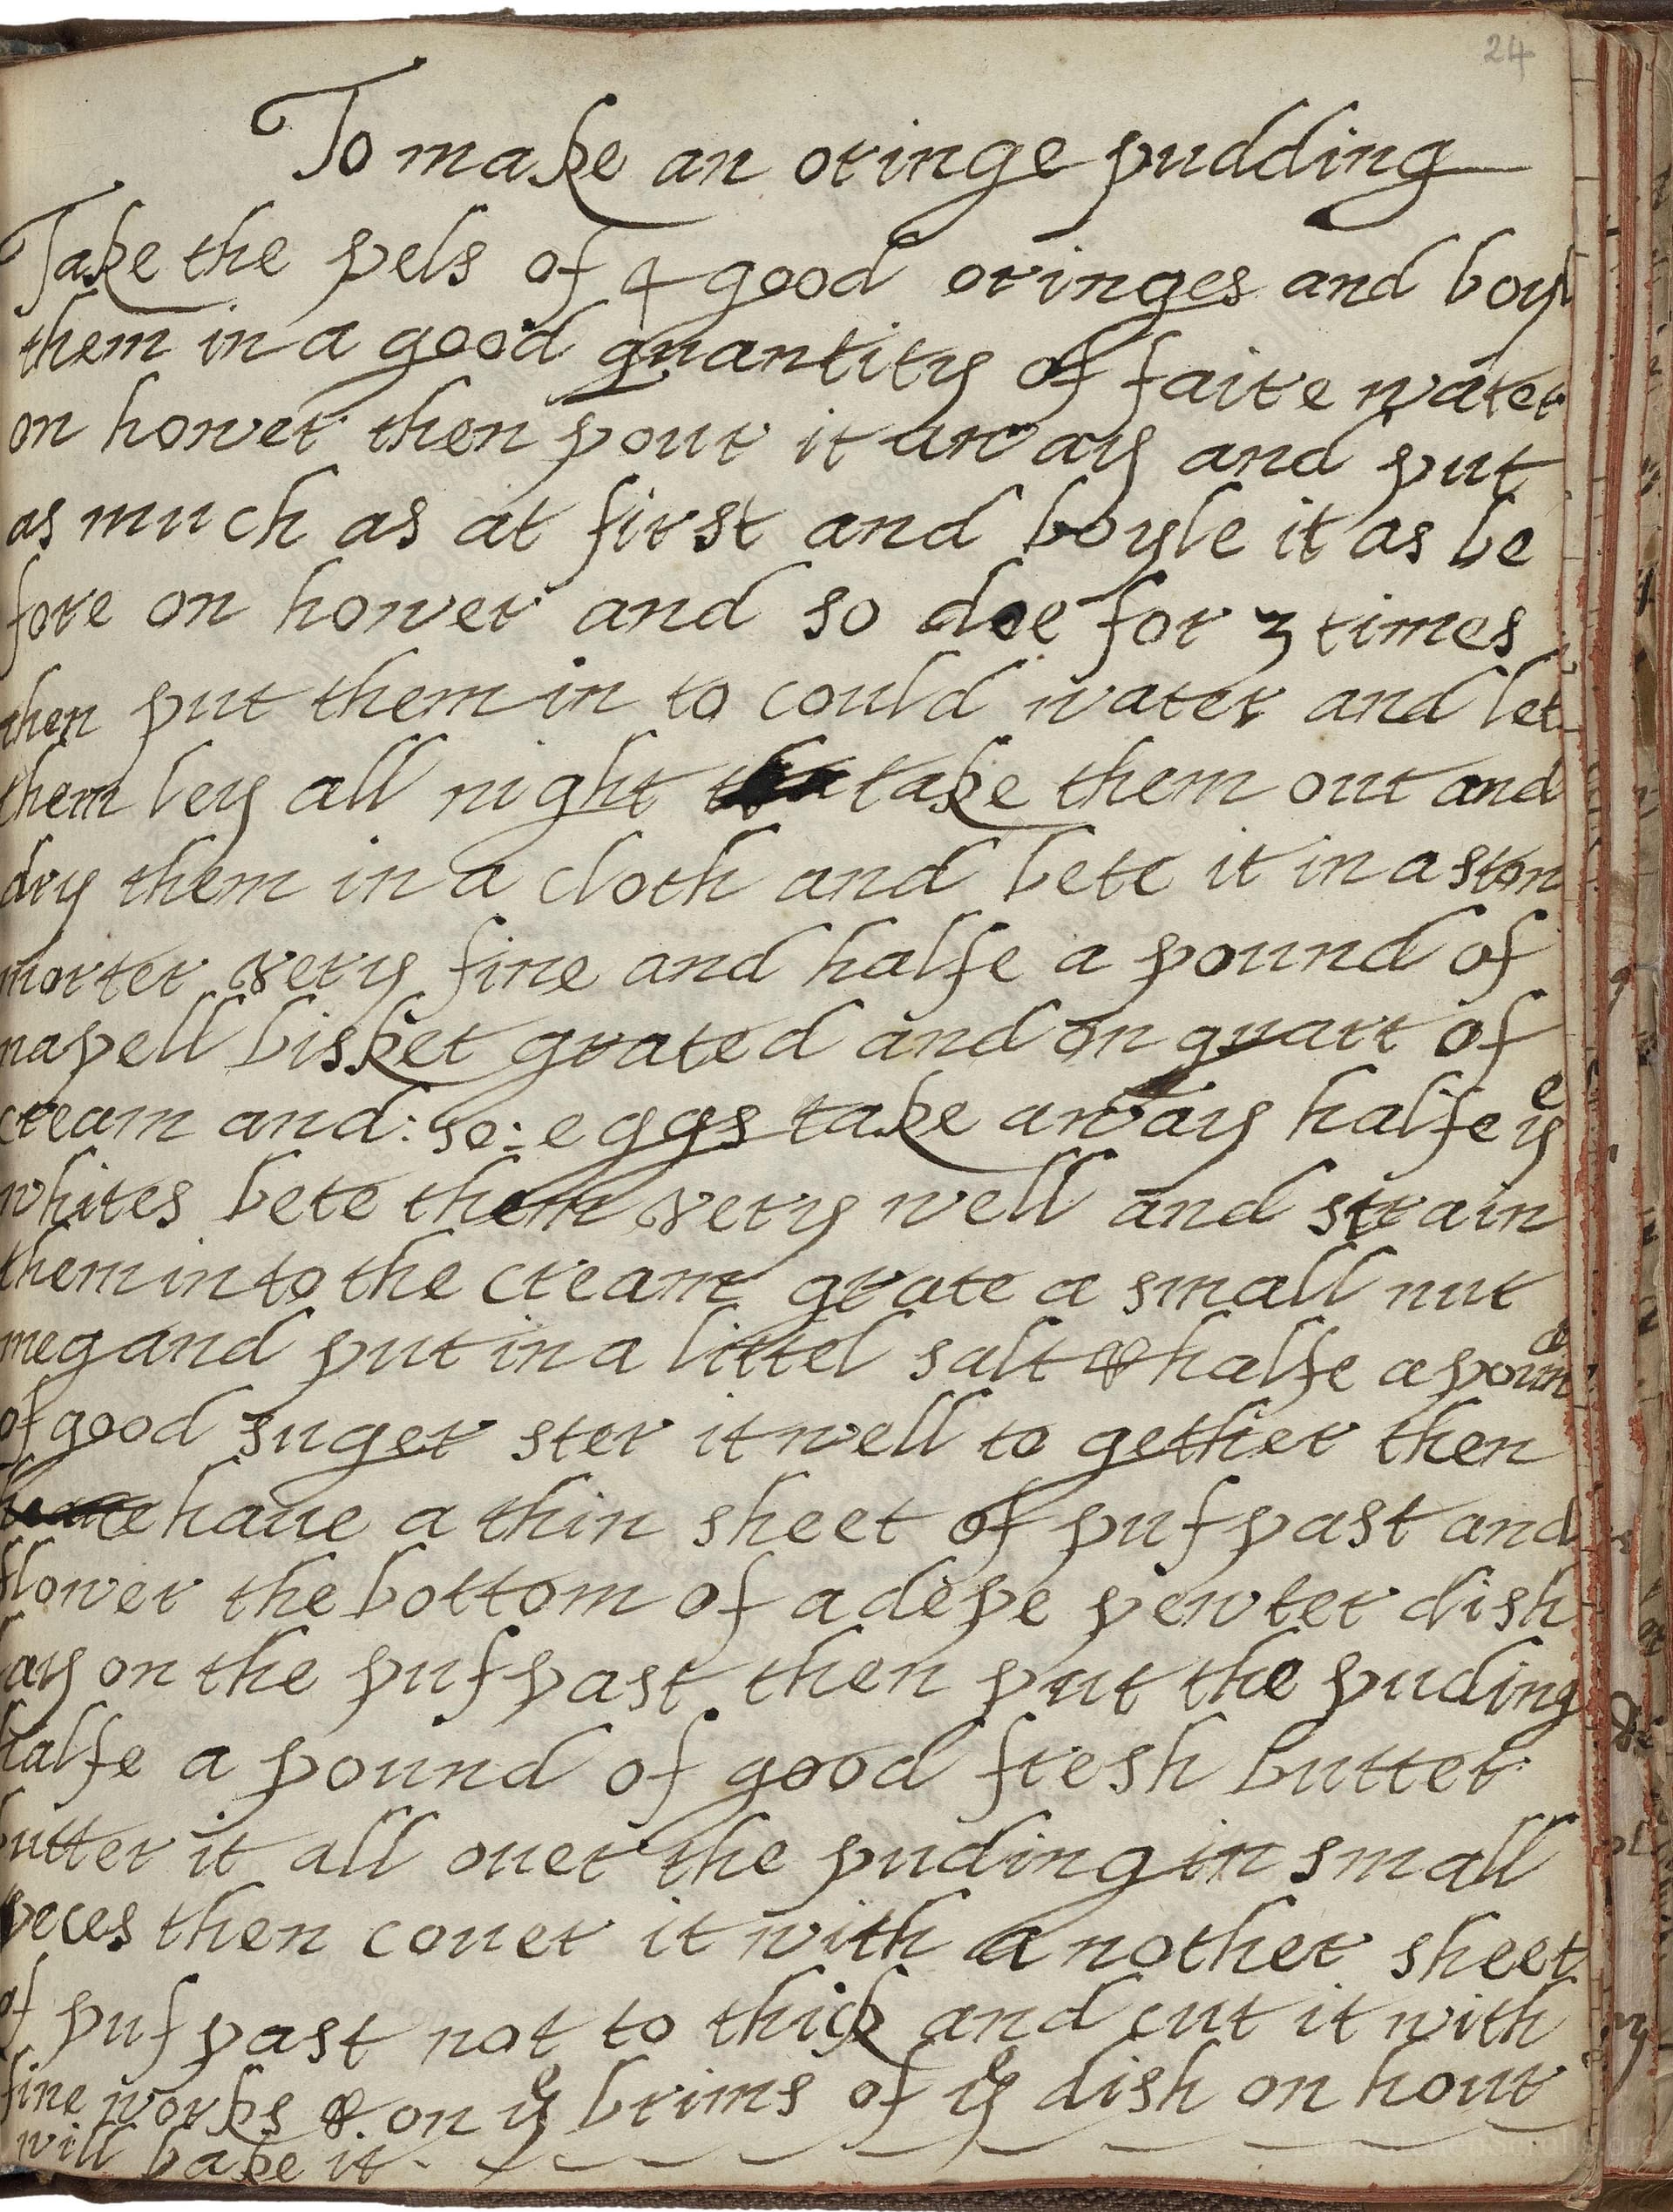 24
To make an oringe pudding
Take the pels of 4 good oringes and boyl
them in a good quantity of faire water
on hower then pour it away and put
as much as at first and boyle it as be
fore on hower and so doe for 3 times
then put them in to could water and let
them ley all night take them out and
dry them in a cloth and bete it in a ston
morter very fine and halfe a pound of
napell bisket grated and on quart of
cream and: :eggs take away halfe yᵉ
whites bete them very well and strain
them in to the cream grate a small nut
meg and put in a littel salt & halfe a pound
of good suger ster it well to gether then
haue a thin sheet of puf past and
flower the bottom of a depe pewter dish
lay on the puf past then put the puding
halfe a pound of good fresh butter
butter it all ouer the puding in small
peces then couer it with a nother sheet
of puf past not to thick and cut it with
fine works & on yᵉ brims of yᵉ dish on hour
will bake it